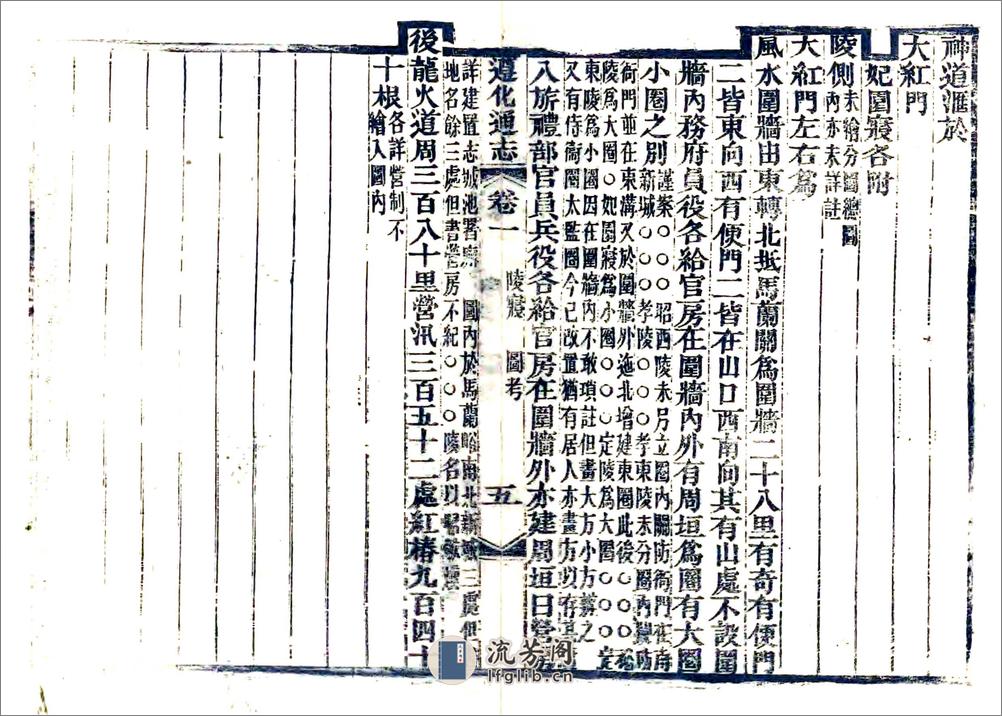 神道滙於
大紅門
妃園寢各附
陵側未繪分圖總圖
內亦未詳註
大紅門左右爲
風水圍牆由東轉北抵馬蘭關爲圍牆二十八里有奇有便門
二皆東向西有便門二皆在山口西南向其有山處不設圍
牆內務府員役各給官房在圍牆內外有周垣爲圈有大圈
小圈之別謹案○○○昭西陵未另立圈內關防衙門在南
新城○○○孝陵○○○孝東陵未分圈內關防
衙門並在東溝又於圍牆外迤北增建東圈此後○○○裕
陵爲大圈○妃園寢爲小圈○○○定陵爲大圈○○○定
東陵爲小圈因在圍牆內不敢瑣註但畫大方小方辨之
又有侍衞圈大監圈今已改置猶有居人亦畫方以存其
八旂禮部官員兵役各給官房在圍牆外亦建周垣曰營房
遵化通志 卷一 陵寢 圖考 五
詳建置志城池署廨 圖內於馬蘭峪南北新城三處但
地名餘三處但書營房不紀○○○陵名以昭敬
後龍火道周三百八十里營汛三百五十二處紅樁九百四十
十根各詳營制不
繪入圖內
流芳阁
lfglib.cn